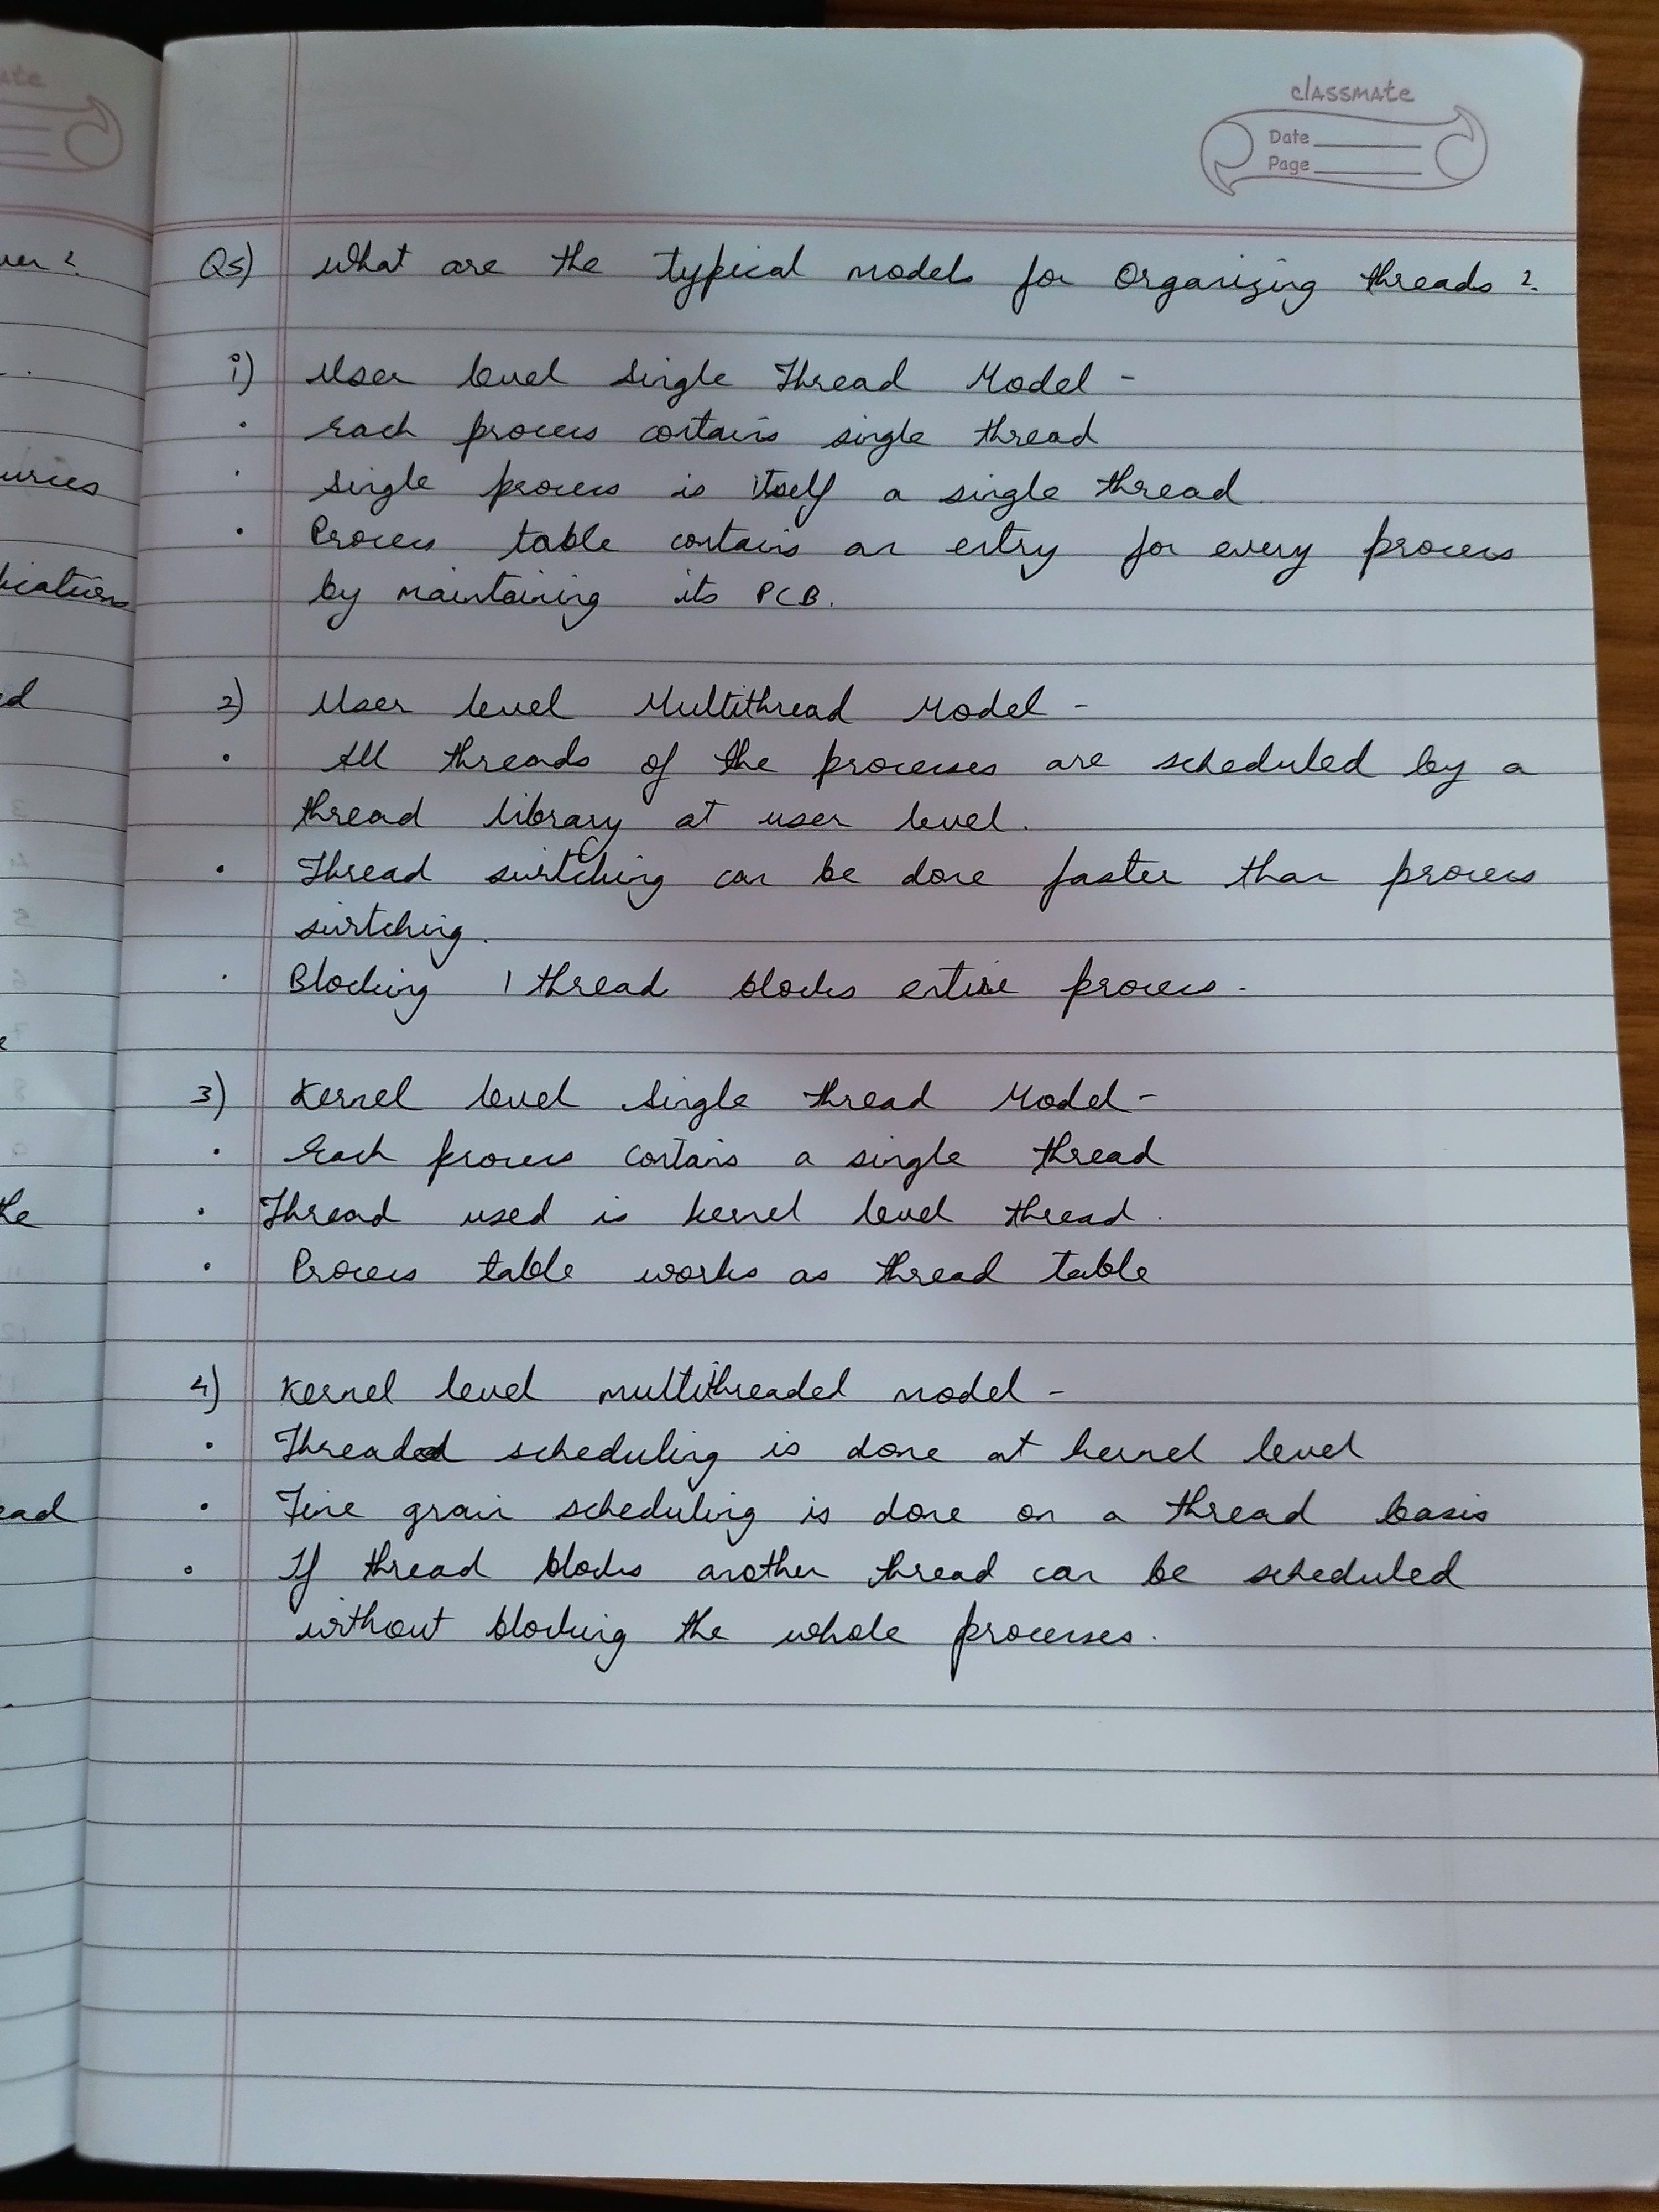 classmate
Date
Page
Q5) What are the typical models for Organizing threads ?
i) User level Single Thread Model -
• Each process contains single thread
• Single process is itself a single thread
• Process table contains an entry for every process
by maintaining its PCB.
2) User level Multithread Model -
• All threads of the processes are scheduled by a
thread library at user level.
• Thread switching can be done faster than process
switching.
• Blocking 1 thread blocks entire process.
3) Kernel level Single thread Model -
• Each process contains a single thread
• Thread used is kernel level thread.
• Process table works as thread table
4) Kernel level multithreaded model -
• Threaded scheduling is done at kernel level
• Fine grain scheduling is done on a thread basis
• If thread blocks another thread can be scheduled
without blocking the whole processes.